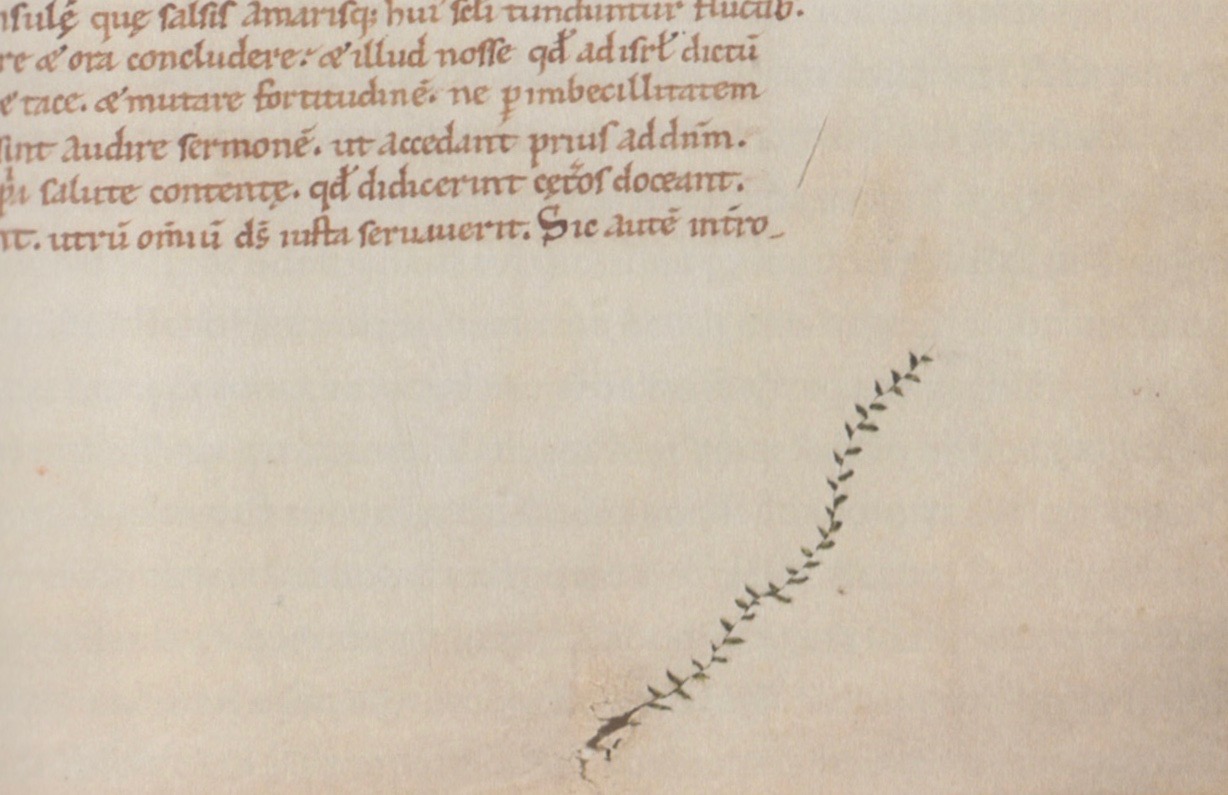 nsulę quę salsis amarisq; hui' scli tunduntur fluctib.
re & ora concludere. & illud nosse qđ ad isrł dictū
ē tace. & mutare fortitudinē. ne ꝑ imbecillitatem
sint audire sermonē. ut accedant prius ad dnm̄.
salute contentę. qđ didicerint cętōs doceant.
nt. utrū om̄iū ds̄ iusta seruauerit. Sic autē intro_